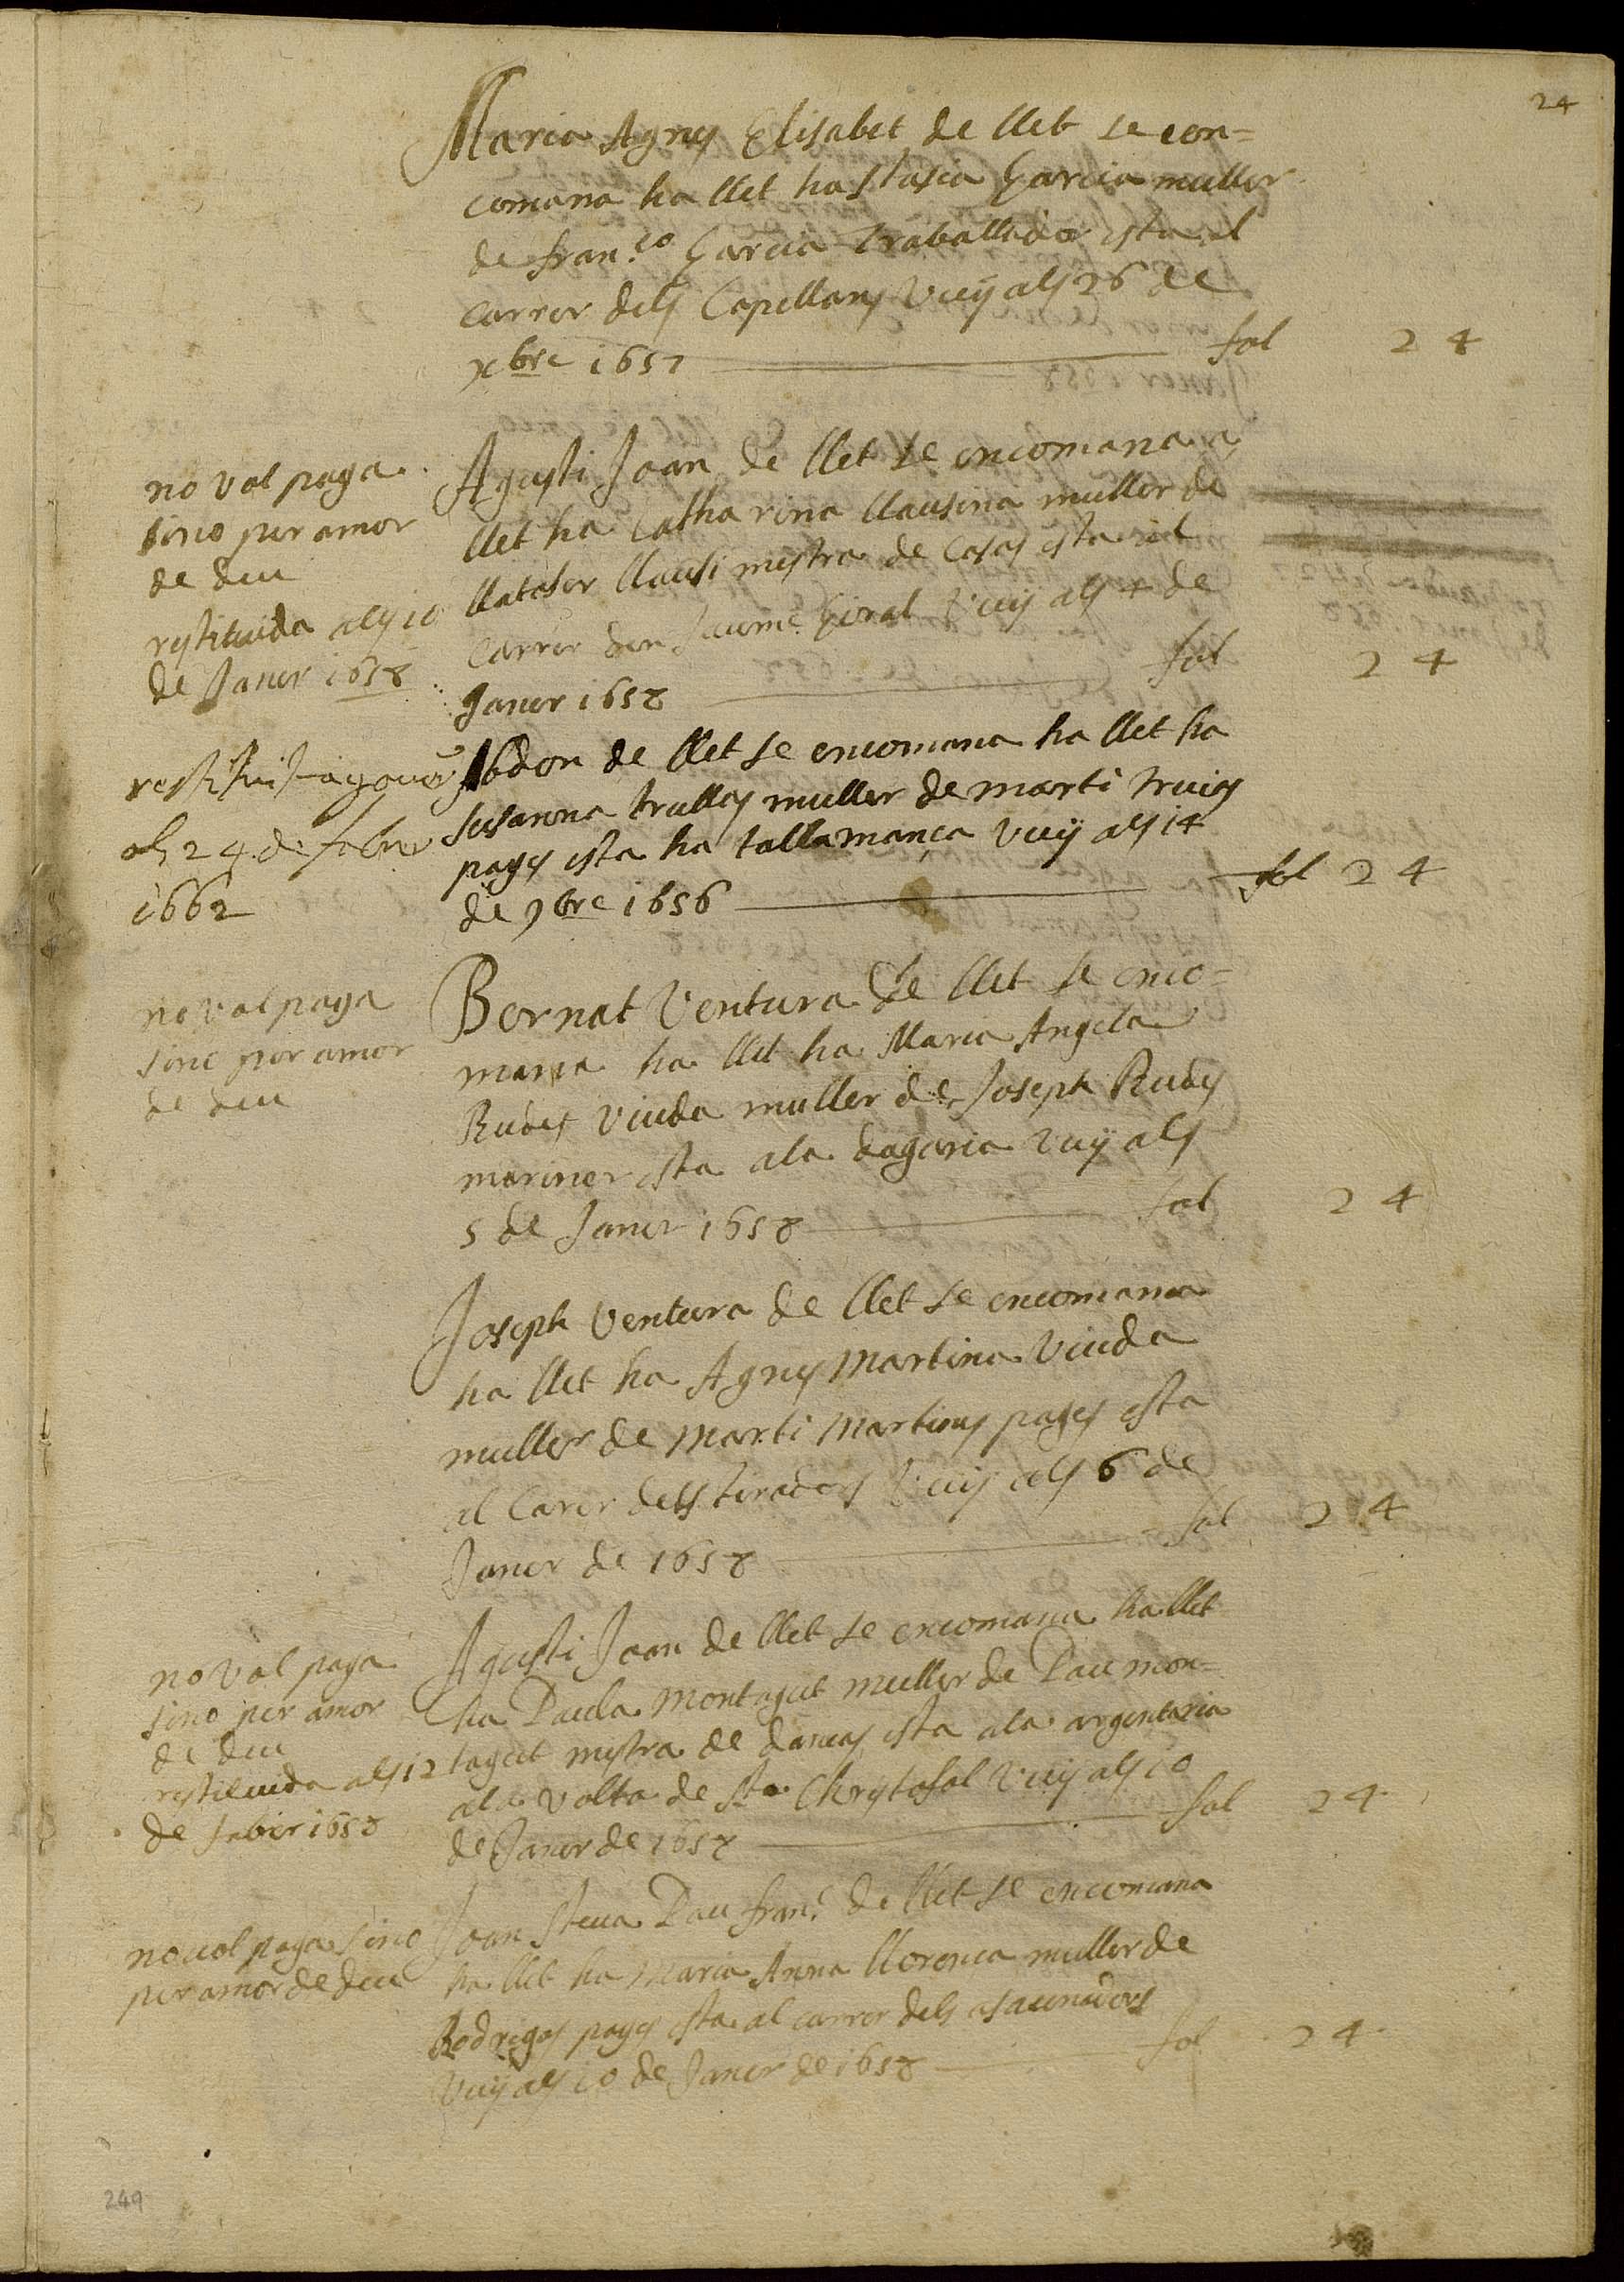 24
Maria Agnes Elisabet de llet se con=
comana ha llet ha stasia Garcia muller
de fran.co Garcia traballador esta al
Carrer dels Capellans vuÿ als 26 de
xbre 1657 fol 24
no vol paga
sino per amor
de deu
restituida als 10
de Janer 1658
Agusti Joan de llet se encomana a
llet ha Catharina llausina muller de
llatser llausi mestra de Casas esta al
Carrer den Jaume Giral vuÿ als 4 de
Janer 1658 fol 24
restituit
als 24 de febrer
1662
Abdon de llet se encomana ha llet ha
Susanna trulles muller de marti trules
pages esta ha tallamança vuÿ als 14
de 9bre 1656 fol 24
no vol paga
sino per amor
de deu
Bernat Ventura de llet se enco=
mana ha llet ha Maria Angela
Rudes viuda muller de Joseph Rudes
mariner esta ala dagaria vuÿ als
5 de Janer 1658 fol 24
Joseph Ventura de llet se encomana
ha llet ha Agnes Martina viuda
muller de Marti Martines pages esta
al Carer dels tiradors vuÿ als 6 de
Janer de 1658 fol 24
no vol paga
sino per amor
de deu
restituida als 12
de febrer 1658
Agusti Joan de llet se encomana ha llet
ha Paula Montagut muller de Pau mon=
tagut mestra de dansas esta ala argentaria
ala volta de St. Chrystofol vuÿ als 10
de Janer de 1658 fol 24
no vol paga sino
per amor de deu
Joan Steva Pau fran.c de llet se encomana
ha llet ha Maria Anna llorensa muller de
Rodrigos pages esta al carrer dels asaunadors
vuÿ als 10 de Janer de 1658 fol 24
249